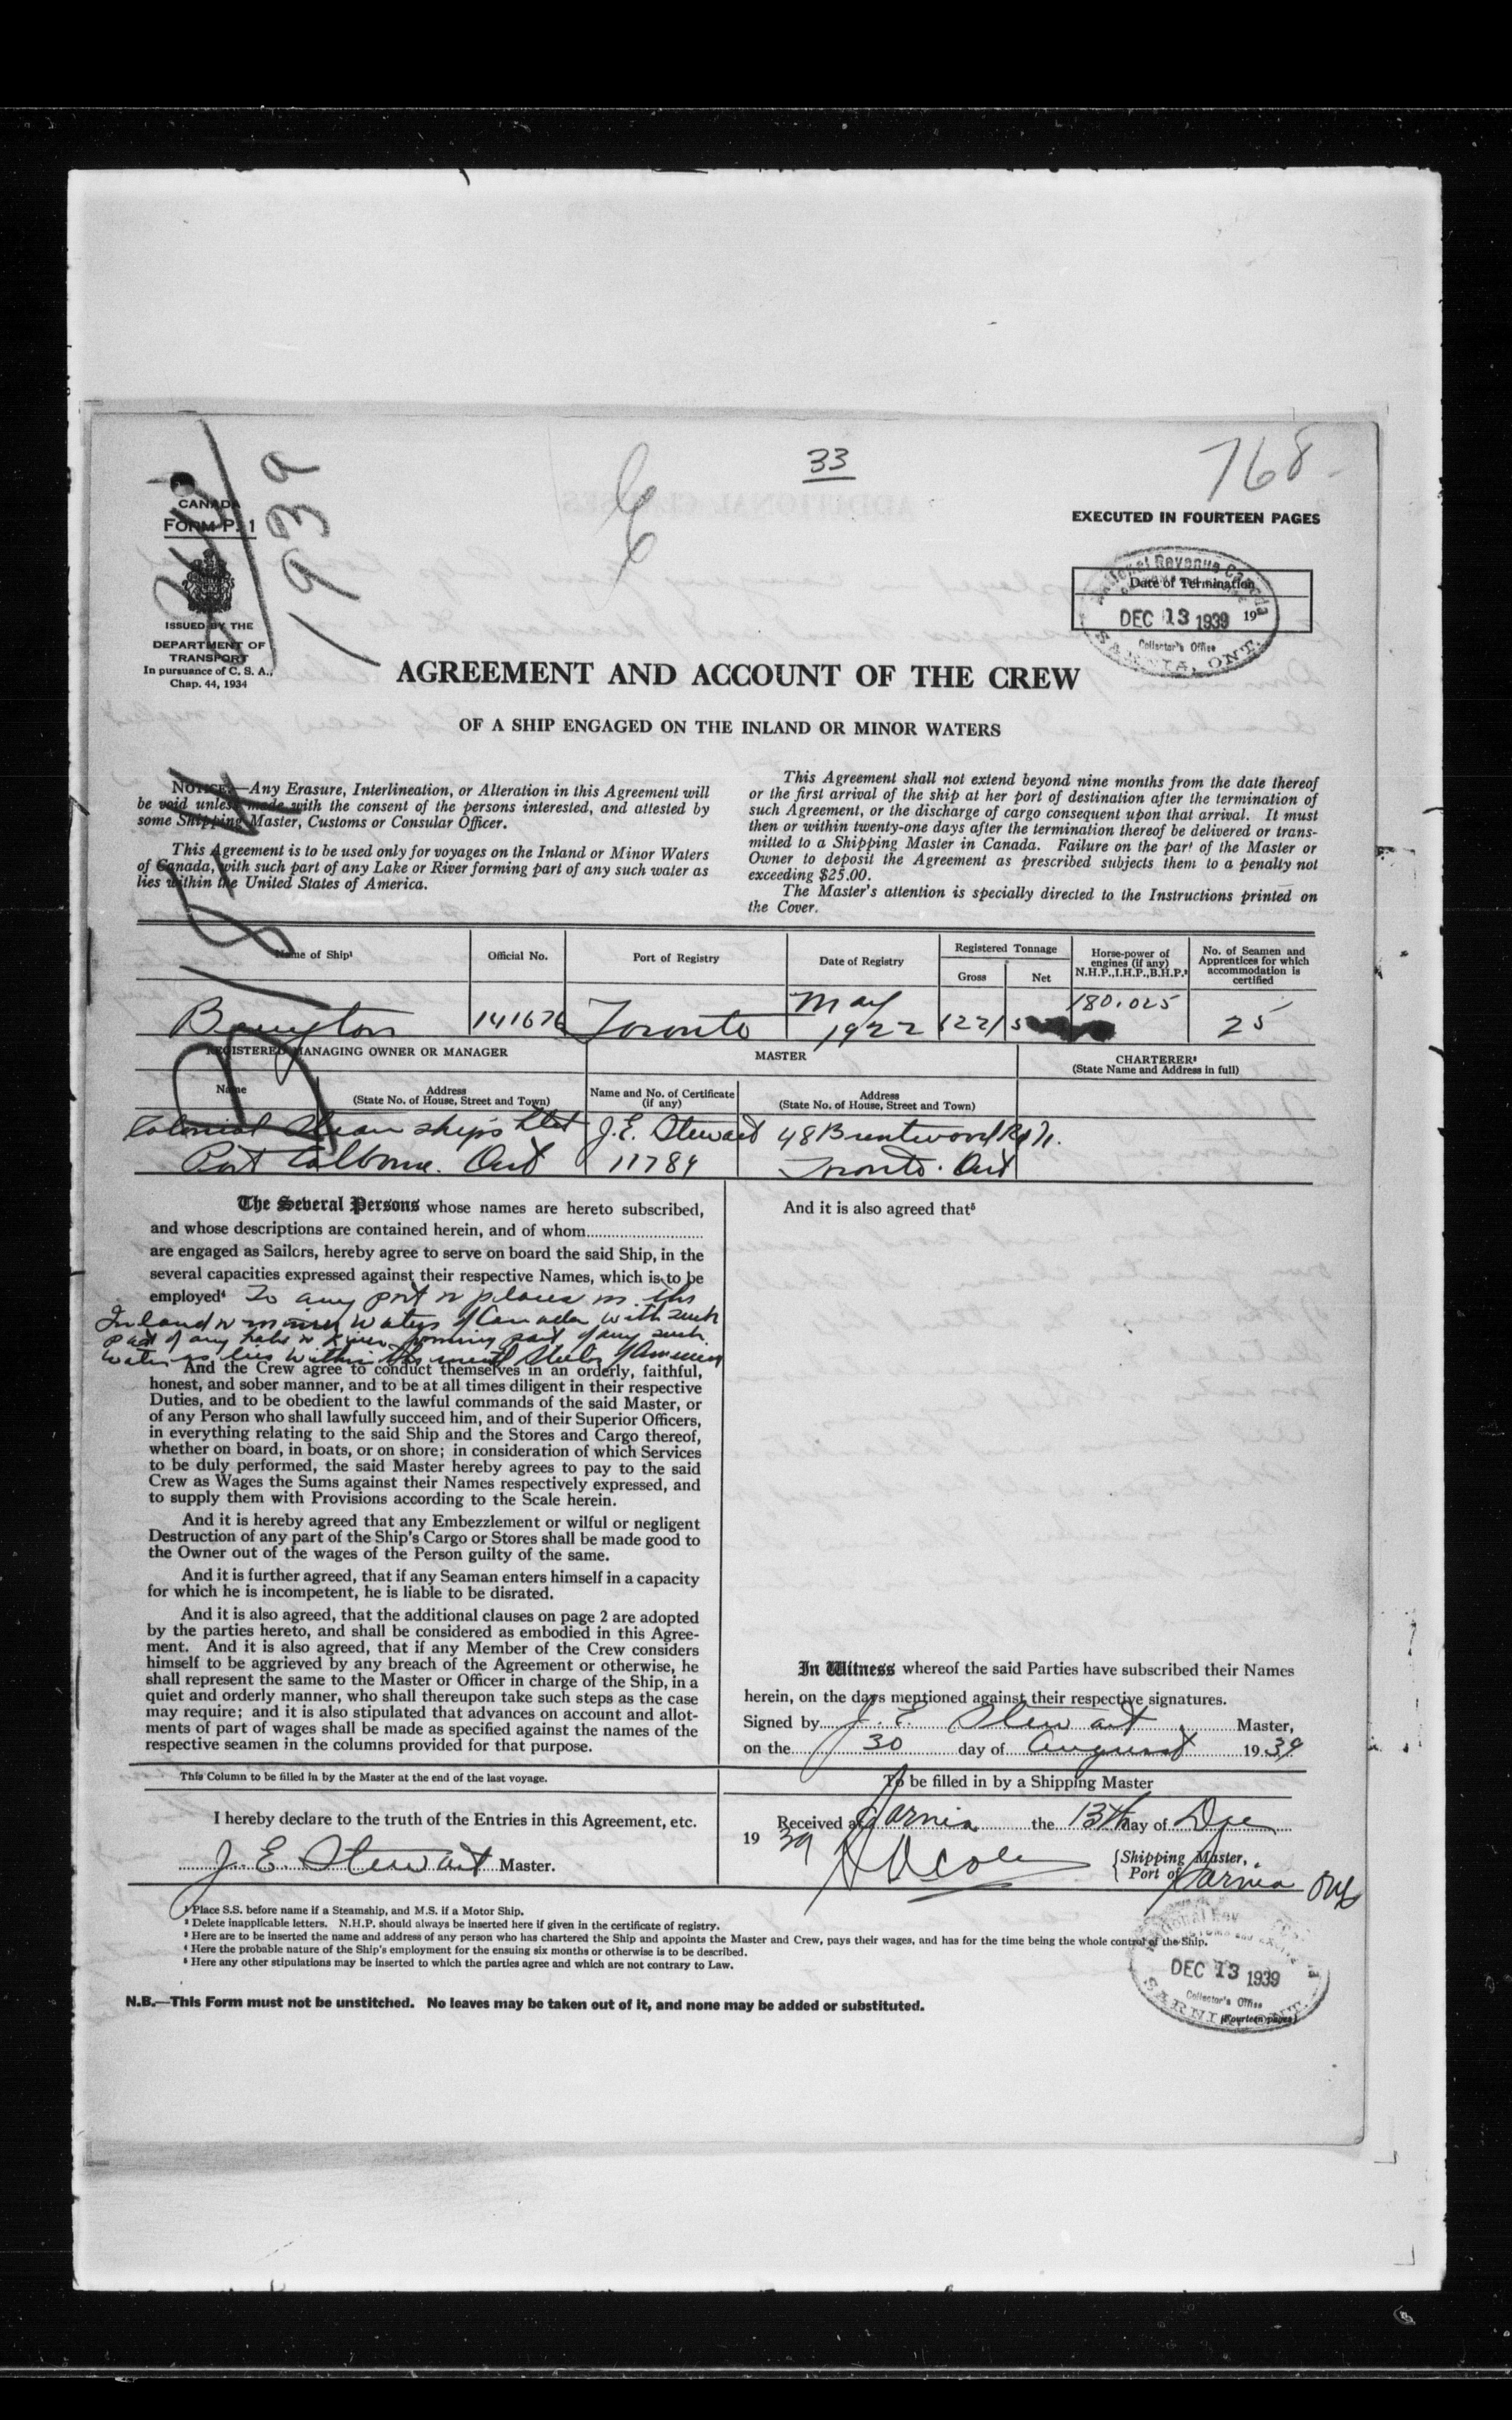 33
768
1939
CANADA
FORM P. 1
EXECUTED IN FOURTEEN PAGES
ISSUED BY THE
DEPARTMENT OF
TRANSPORT
In pursuance of C. S. A.,
Chap. 44, 1934
National Revenue Canada
Date of Termination
DEC 13 1939 19
Collector's Office
SARNIA, ONT.
AGREEMENT AND ACCOUNT OF THE CREW
OF A SHIP ENGAGED ON THE INLAND OR MINOR WATERS
NOTICE.—Any Erasure, Interlineation, or Alteration in this Agreement will
be void unless made with the consent of the persons interested, and attested by
some Shipping Master, Customs or Consular Officer.
This Agreement is to be used only for voyages on the Inland or Minor Waters
of Canada, with such part of any Lake or River forming part of any such water as
lies within the United States of America.
This Agreement shall not extend beyond nine months from the date thereof
or the first arrival of the ship at her port of destination after the termination of
such Agreement, or the discharge of cargo consequent upon that arrival. It must
then or within twenty-one days after the termination thereof be delivered or trans-
mitted to a Shipping Master in Canada. Failure on the part of the Master or
Owner to deposit the Agreement as prescribed subjects them to a penalty not
exceeding $25.00.
The Master's attention is specially directed to the Instructions printed on
the Cover.
Name of Ship¹ Official No. Port of Registry Date of Registry Registered Tonnage Gross Net Horse-power of engines (if any) N.H.P., I.H.P., B.H.P.² No. of Seamen and Apprentices for which accommodation is certified
141676 Toronto May 1922 180.025 25
REGISTERED MANAGING OWNER OR MANAGER MASTER CHARTERER³
(State Name and Address in full)
Name Address (State No. of House, Street and Town) Name and No. of Certificate (if any) Address (State No. of House, Street and Town)
Colonial Steamships Ltd J. E. Stewart 48 Brentwood Rd N.
Port Colborne. Ont 11784 Toronto. Ont
The Several Persons whose names are hereto subscribed,
and whose descriptions are contained herein, and of whom
are engaged as Sailors, hereby agree to serve on board the said Ship, in the
several capacities expressed against their respective Names, which is to be
employed⁴ To any port or places in the
Inland or minor waters of Canada with such
part of any Lake or River forming part of any such
water as lies within the United States of America
And the Crew agree to conduct themselves in an orderly, faithful,
honest, and sober manner, and to be at all times diligent in their respective
Duties, and to be obedient to the lawful commands of the said Master, or
of any Person who shall lawfully succeed him, and of their Superior Officers,
in everything relating to the said Ship and the Stores and Cargo thereof,
whether on board, in boats, or on shore; in consideration of which Services
to be duly performed, the said Master hereby agrees to pay to the said
Crew as Wages the Sums against their Names respectively expressed, and
to supply them with Provisions according to the Scale herein.
And it is hereby agreed that any Embezzlement or wilful or negligent
Destruction of any part of the Ship's Cargo or Stores shall be made good to
the Owner out of the wages of the Person guilty of the same.
And it is further agreed, that if any Seaman enters himself in a capacity
for which he is incompetent, he is liable to be disrated.
And it is also agreed, that the additional clauses on page 2 are adopted
by the parties hereto, and shall be considered as embodied in this Agree-
ment. And it is also agreed, that if any Member of the Crew considers
himself to be aggrieved by any breach of the Agreement or otherwise, he
shall represent the same to the Master or Officer in charge of the Ship, in a
quiet and orderly manner, who shall thereupon take such steps as the case
may require; and it is also stipulated that advances on account and allot-
ments of part of wages shall be made as specified against the names of the
respective seamen in the columns provided for that purpose.
And it is also agreed that⁵
In Witness whereof the said Parties have subscribed their Names
herein, on the days mentioned against their respective signatures.
Signed by J. E. Stewart Master,
on the 30 day of August 19 39
This Column to be filled in by the Master at the end of the last voyage.
I hereby declare to the truth of the Entries in this Agreement, etc.
J. E. Stewart Master.
To be filled in by a Shipping Master
Received at Sarnia the 13th day of Dec
19 39
Shipping Master,
Port of Sarnia Ont
¹ Place S.S. before name if a Steamship, and M.S. if a Motor Ship.
² Delete inapplicable letters. N.H.P. should always be inserted here if given in the certificate of registry.
³ Here are to be inserted the name and address of any person who has chartered the Ship and appoints the Master and Crew, pays their wages, and has for the time being the whole control of the Ship.
⁴ Here the probable nature of the Ship's employment for the ensuing six months or otherwise is to be described.
⁵ Here any other stipulations may be inserted to which the parties agree and which are not contrary to Law.
DEC 13 1939
Collector's Office
SARNIA, ONT.
N.B.—This Form must not be unstitched. No leaves may be taken out of it, and none may be added or substituted.
(Fourteen pages)